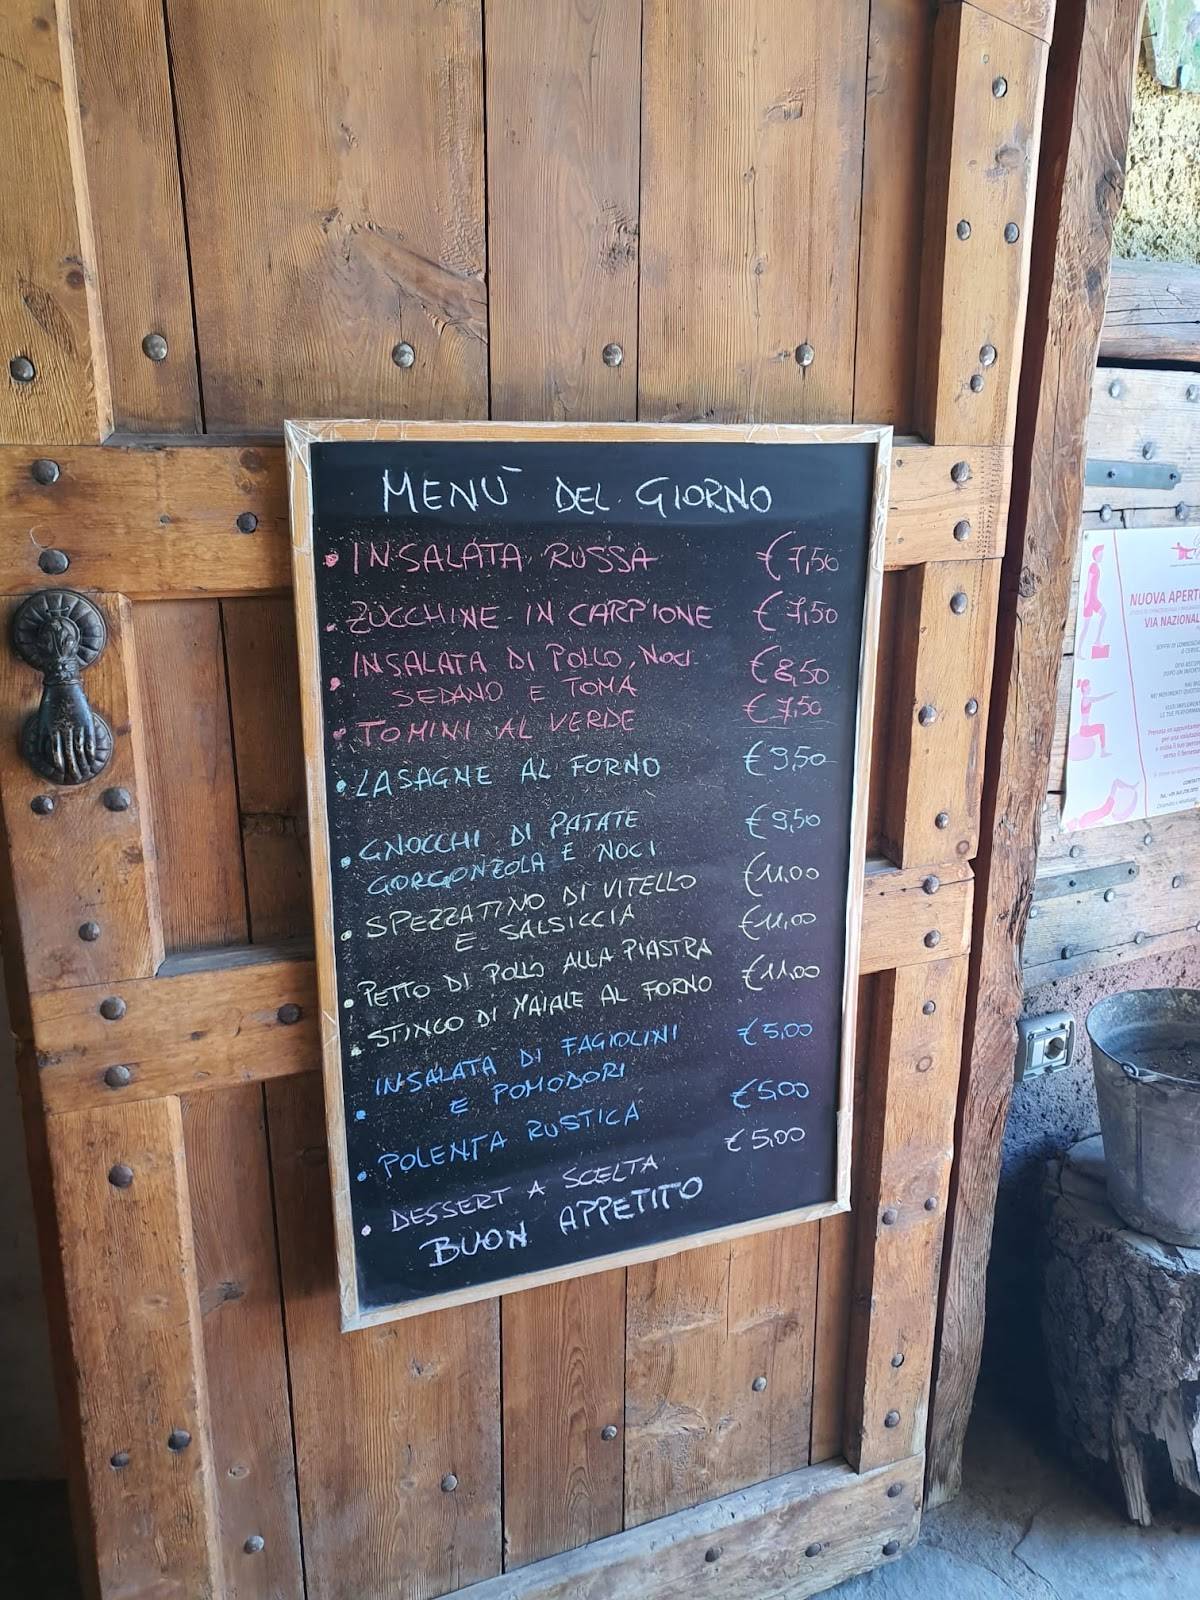 MENÙ DEL GIORNO
• INSALATA RUSSA €7,50
• ZUCCHINE IN CARPIONE €7,50
• INSALATA DI POLLO, NOCI €8,50
SEDANO E TOMA
• TOMINI AL VERDE €7,50
• LASAGNE AL FORNO €9,50
• GNOCCHI DI PATATE €9,50
GORGONZOLA E NOCI
• SPEZZATINO DI VITELLO €11,00
E SALSICCIA
• PETTO DI POLLO ALLA PIASTRA €11,00
• STINCO DI MAIALE AL FORNO €11,00
• INSALATA DI FAGIOLINI €5,00
E POMODORI
• POLENTA RUSTICA €5,00
• DESSERT A SCELTA €5,00
BUON APPETITO
NUOVA APERTU
VIA NAZIONAL